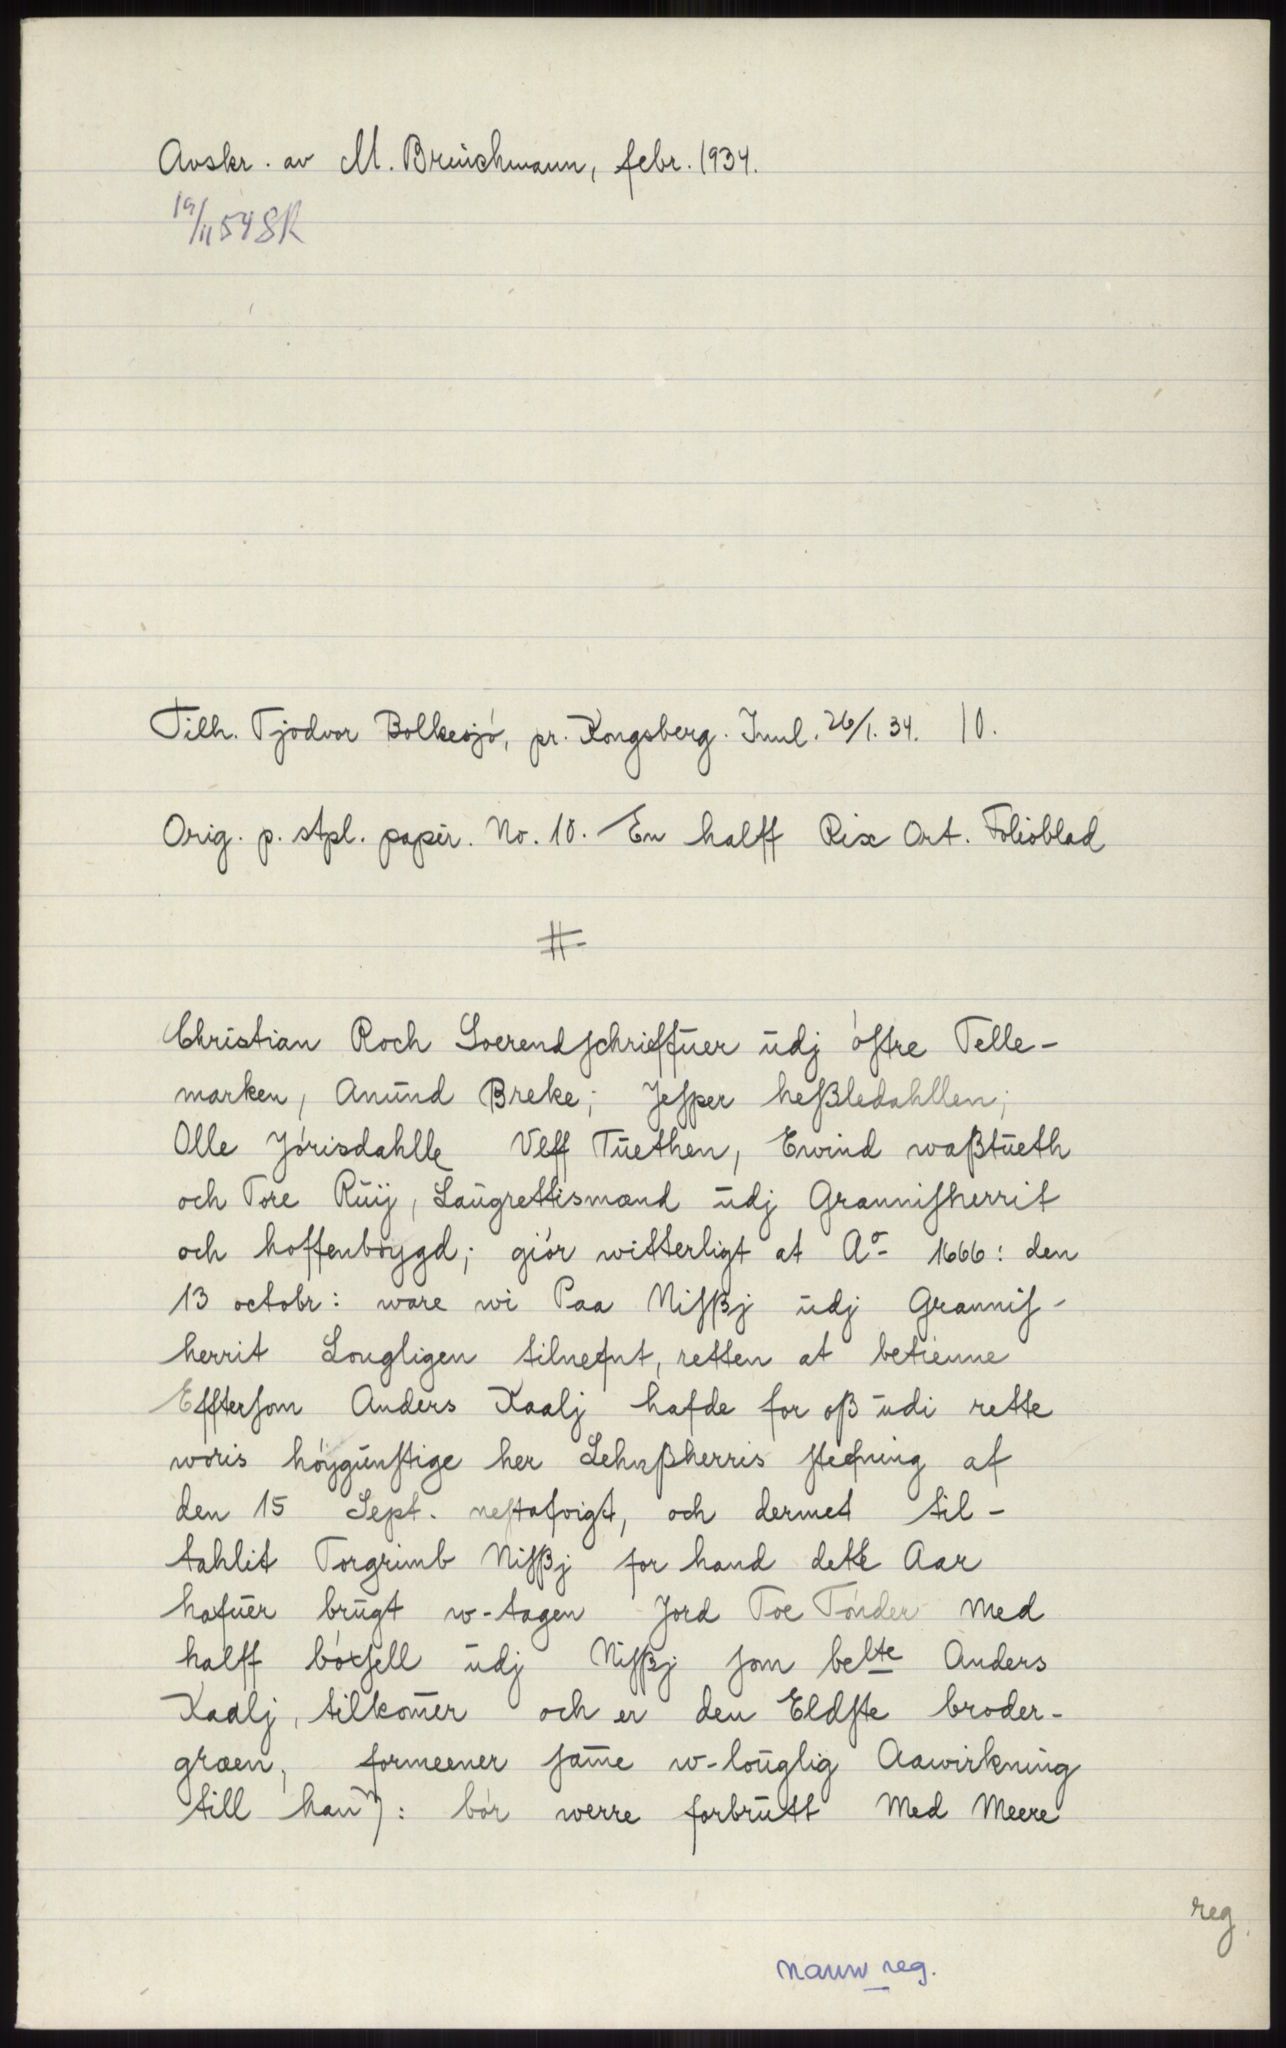 Avskr. av M. Brinchmann, febr. 1934.
19/11 54 SR
Tilh. Tjodvor Bolkesjó, pr. Kongsberg. Innl. 26/1. 34. 10.
Orig. p. stpl. papir. No. 10. En halff Rix Ort. Folioblad
#
Christian Roch Soerendſchrieffuer udj óſtre Telle-
marken, Anund Breke; Jeſper heßledahllen;
Olle Jórisdahlle Vlff Tuethen, Ewind waßtueth
och Tore Ruij, Laugrettismænd udj Granniſherrit
och hoffenbóygd; giór witterligt at Aº 1666: den
13 octobr: ware wi Paa Niſßj udj Granniſ-
herrit Lougligen tilnefnt, retten at betienne
Effterſom Anders Kaalj hafde for oß udi rette
woris hóygunſtige her Lehnßherris ſtefning af
den 15 Sept. neſtafvigt, och dermet til-
tahlit Torgrimb Niſßj for hand dette Aar
hafuer brugt w-tagen Jord Toe Tónder Med
halff bóxſell udj Niſßj ſom belte Anders
Kaalj, tilkom̄er och er den Eldſte broder-
græn, formeener ſam̄e w-louglig Aawirkning
till han): bór werre forbrutt Med Meere
reg.
navn reg.